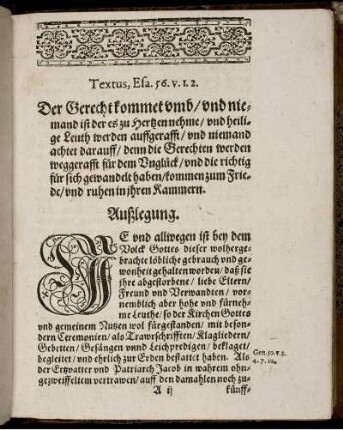 Textus, Esa. 56. v. 1. 2.
Der Gerecht kommet vmb/ vnd nie-
mand ist der es zu Hertzen nehme/ vnd heili-
ge Leuth werden auffgerafft/ vnd niemand
achtet darauff/ denn die Gerechten werden
weggerafft für dem Vnglück/ vnd die richtig
für sich gewandelt haben/ kommen zum Frie-
de/ vnd ruhen in jhren Kammern.
Außlegung.
JE vnd allwegen ist bey dem
Volck Gottes dieser wolherge-
brachte löbliche gebrauch vnd ge-
wonheit gehalten worden/ daß sie
jhre abgestorbene/ liebe Eltern/
Freund vnd Verwandten/ vor-
nemblich aber hohe vnd fürneh-
me Leuthe/ so der Kirchen Gottes
vnd gemeinem Nutzen wol fürgestanden/ mit beson-
dern Ceremonien/ als Trawrschrifften/ Klagliedern/
Gebetten/ Gesängen vnnd Leichpredigen/ beklaget/
begleitet/ vnd ehrlich zur Erden bestattet haben. Als
der Ertzvatter vnd Patriarch Jacob in wahrem ohn-
gezweiffeltem vertrawen/ auff den damahlen noch zu-
Gen. 50. v. 3.
4. 7. 10.
A ij
künff-